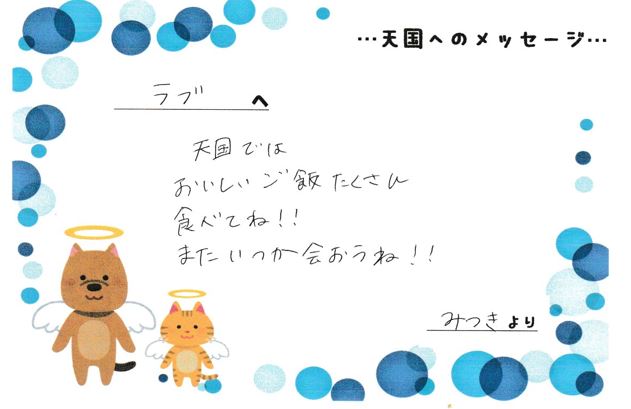 …天国へのメッセージ…
ラブ へ
天国では
おいしいご飯たくさん
食べてね!!
またいつか会おうね!!
みつき より